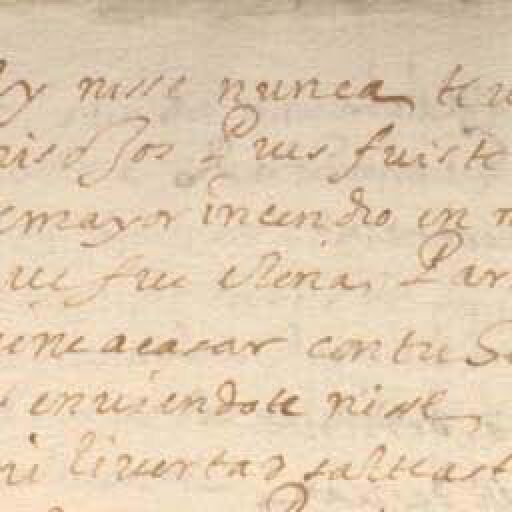 ay nisse nunca teu
ojos Pues fuiste
mayor incendio en m
que fue elena, Par
uiene a casar con tu Se
enuiendote nisse
mi liuertad salteast